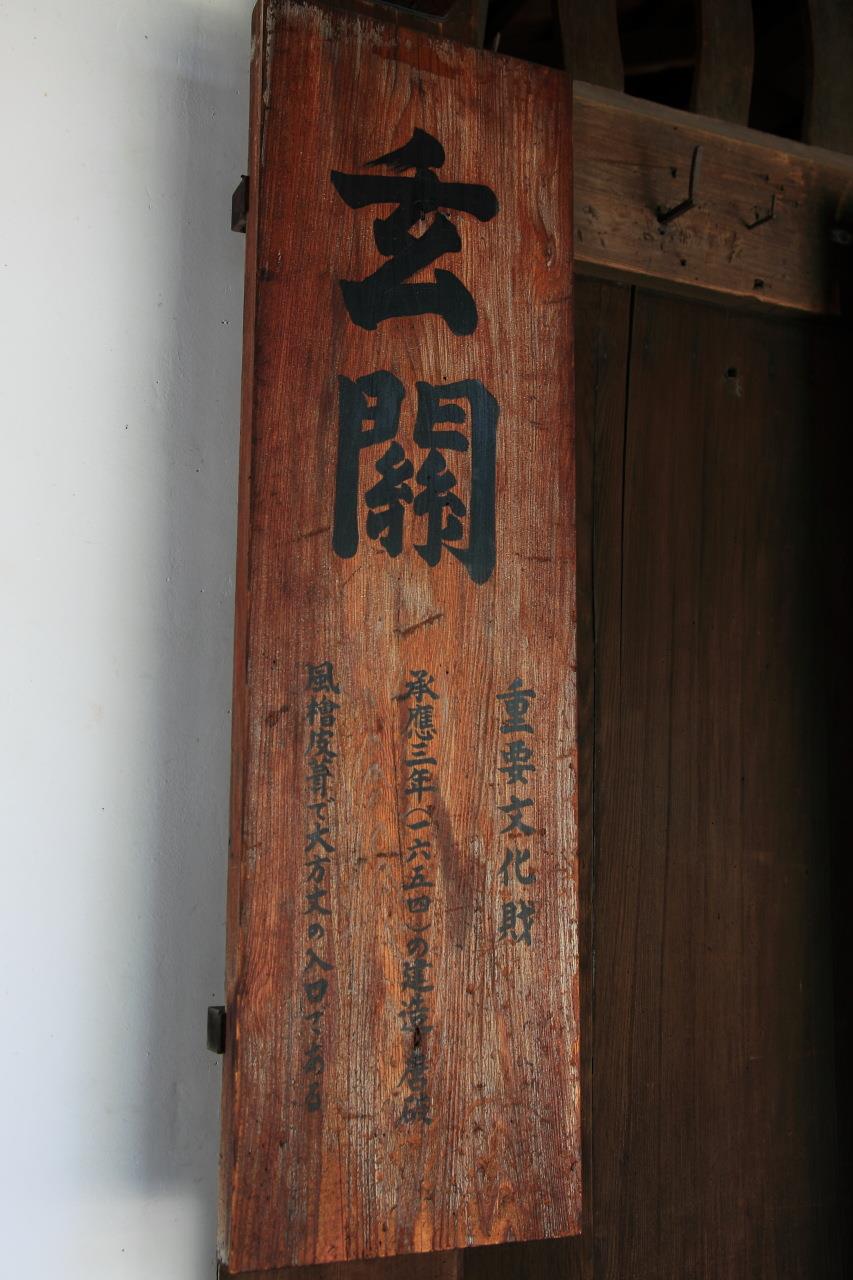 玄關
重要文化財
承應三年(一六五四)の建造 唐破
風檜皮葺で大方丈の入口である